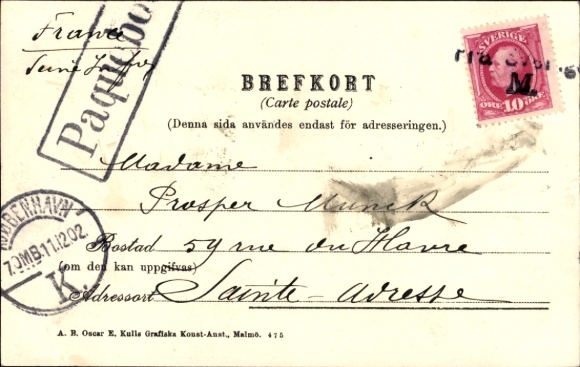 France
Paquebot
SVERIGE
Från Sverige
M.
ÖRE 10 ÖRE
BREFKORT
(Carte postale)
(Denna sida användes endast för adresseringen.)
Madame
Prosper Munck
Bostad 59 rue du Havre
(om den kan uppgifvas)
Adressort Sainte-Adresse
KØBENHAVN
11.12.02.
K.
A. B. Oscar E. Kulls Grafiska Konst-Anst., Malmö. 475